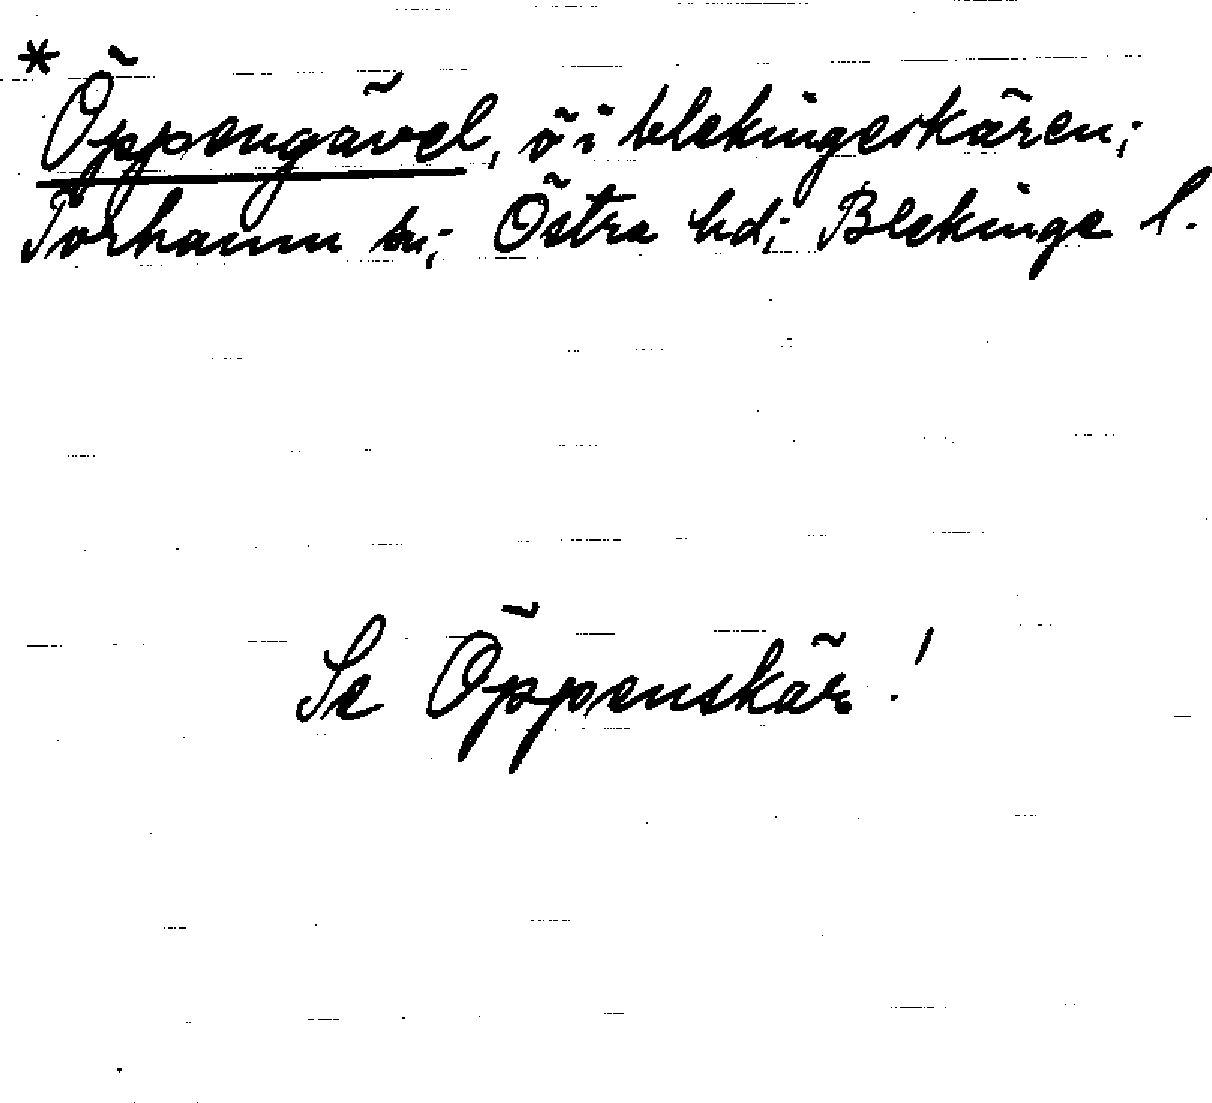 * Öppengävel, ö i blekingeskären;
Torhamn sn; Östra hd; Blekinge l.
Se Öppenskär!